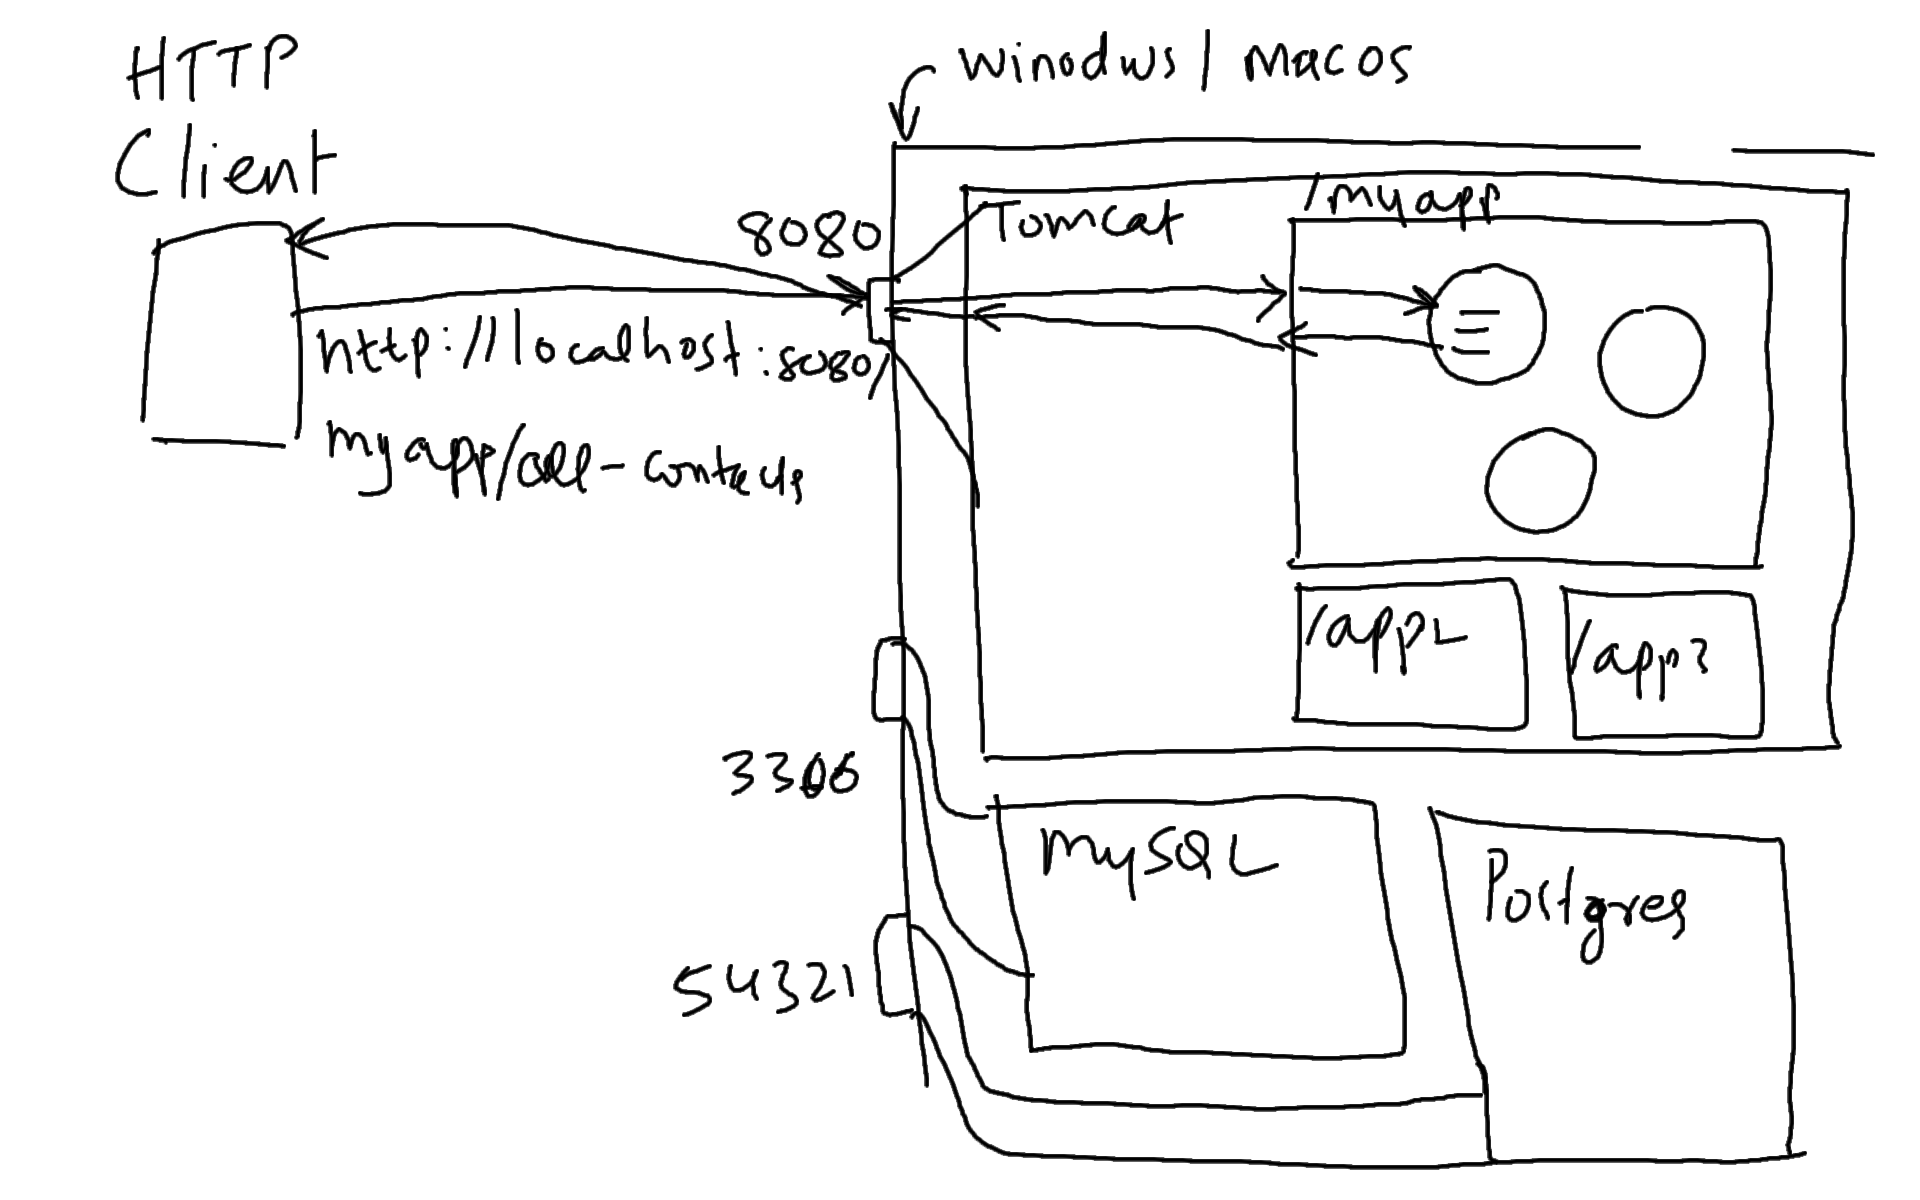 HTTP
Client
winodws / macos
8080
Tomcat
/myapp
http://localhost:8080/
myapp/all-contacts
/app2
/app3
3306
mysQL
Postgres
54321